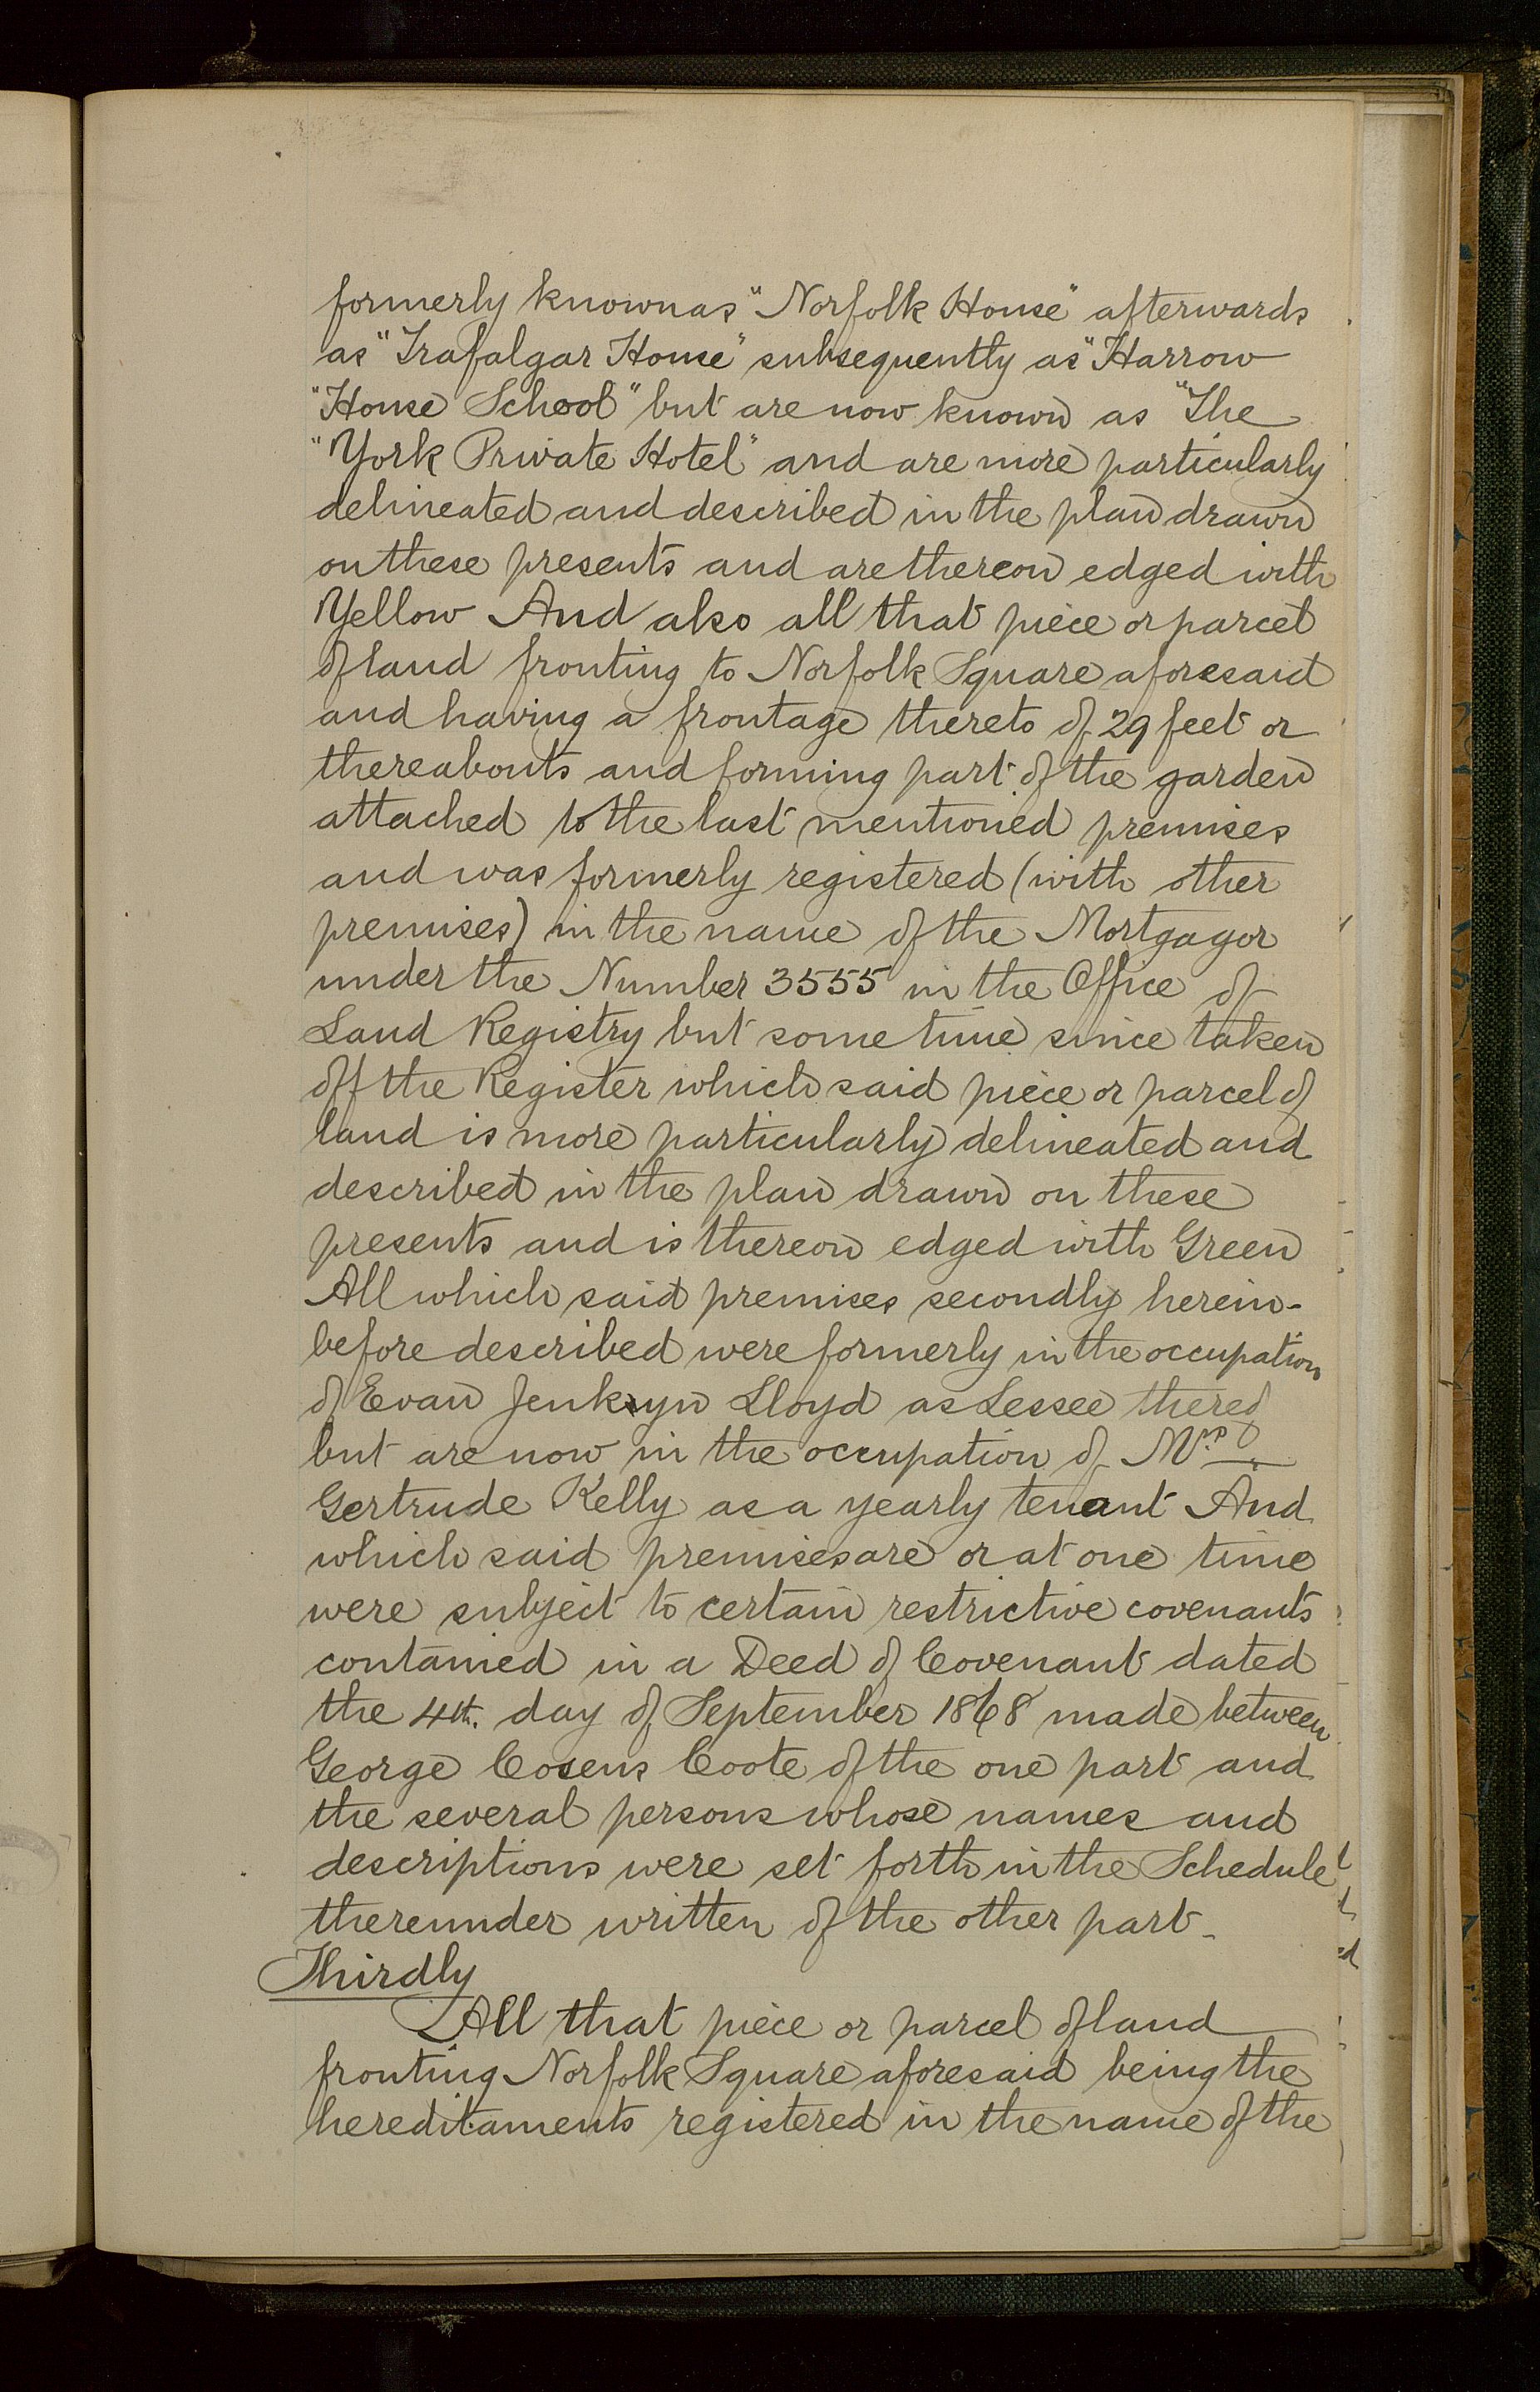 formerly known as "Norfolk House" afterwards
as "Trafalgar House" subsequently as "Harrow
"House School" but are now known as "The
"York Private Hotel" and are more particularly
delineated and described in the plan drawn
on these presents and are thereon edged with
Yellow And also all that piece or parcel
of land fronting to Norfolk Square aforesaid
and having a frontage thereto of 29 feet or
thereabouts and forming part of the garden
attached to the last mentioned premises
and was formerly registered (with other
premises) in the name of the Mortgagor
under the Number 3555 in the Office of
Land Registry but some time since taken
off the Register which said piece or parcel of
land is more particularly delineated and
described in the plan drawn on these
presents and is thereon edged with Green
All which said premises secondly herein-
before described were formerly in the occupation
of Evan Jenkyn Lloyd as Lessee thereof
but are now in the occupation of Mrs.
Gertrude Kelly as a yearly tenant And
which said premises are or at one time
were subject to certain restrictive covenants
contained in a Deed of Covenant dated
the 4th. day of September 1868 made between
George Cosens Coote of the one part and
the several persons whose names and
descriptions were set forth in the Schedule
thereunder written of the other part -
Thirdly
All that piece or parcel of land
fronting Norfolk Square aforesaid being the
hereditaments registered in the name of the